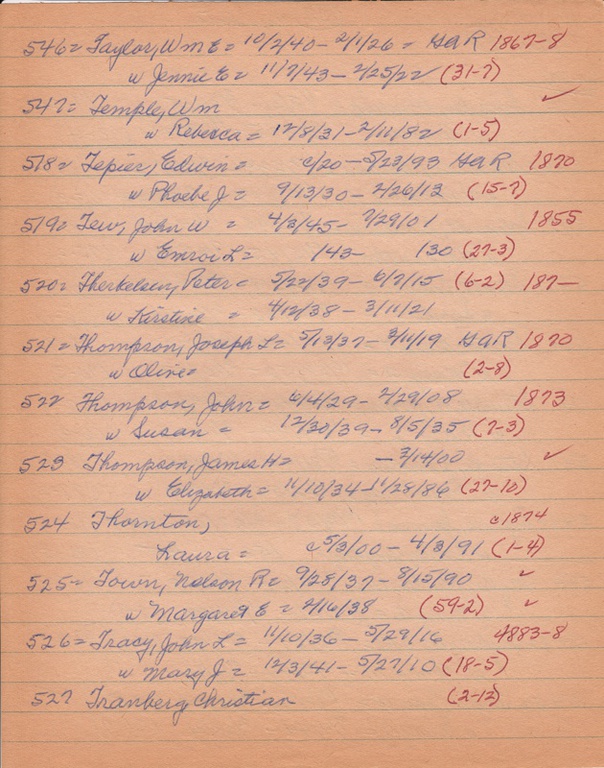 546= Taylor, Wm E = 10/2/40 - 2/1/26 = GAR 1867-8
w Jennie E = 11/7/43 - 2/25/22 (31-7)
547= Temple, Wm ✓
w Rebecca = 12/8/31 - 2/11/82 (1-5)
518= Tepier, Edwin = c/20 - 5/23/93 GAR 1870
w Phoebe J = 9/13/30 - 2/26/13 (15-7)
519= Tew, John W = 4/3/45 - 7/29/01 1855
w Emroi L = /43 - /30 (27-3)
520= Therkelsen, Peter = 5/22/39 - 6/7/15 (6-2) 187-
w Kirstine = 4/12/38 - 3/11/21
521= Thompson, Joseph L = 5/13/37 - 3/11/19 GAR 1870
w Olive = (2-8)
522 Thompson, John = 6/4/29 - 2/29/08 1873
w Susan = 12/30/39 - 8/5/35 (7-3)
523 Thompson, James H = - 3/14/00 ✓
w Elizabeth = 11/10/34 - 11/28/86 (27-10)
524 Thornton, c1874
Laura = c5/3/00 - 4/3/91 (1-4)
525= Town, Nelson R = 9/28/37 - 8/15/90 ✓
w Margaret E = 2/16/38 (59-2) ✓
526= Tracy, John L = 11/10/36 - 5/29/16 4883-8
w Mary J = 12/3/41 - 5/27/10 (18-5)
527 Tranberg, Christian (2-12)